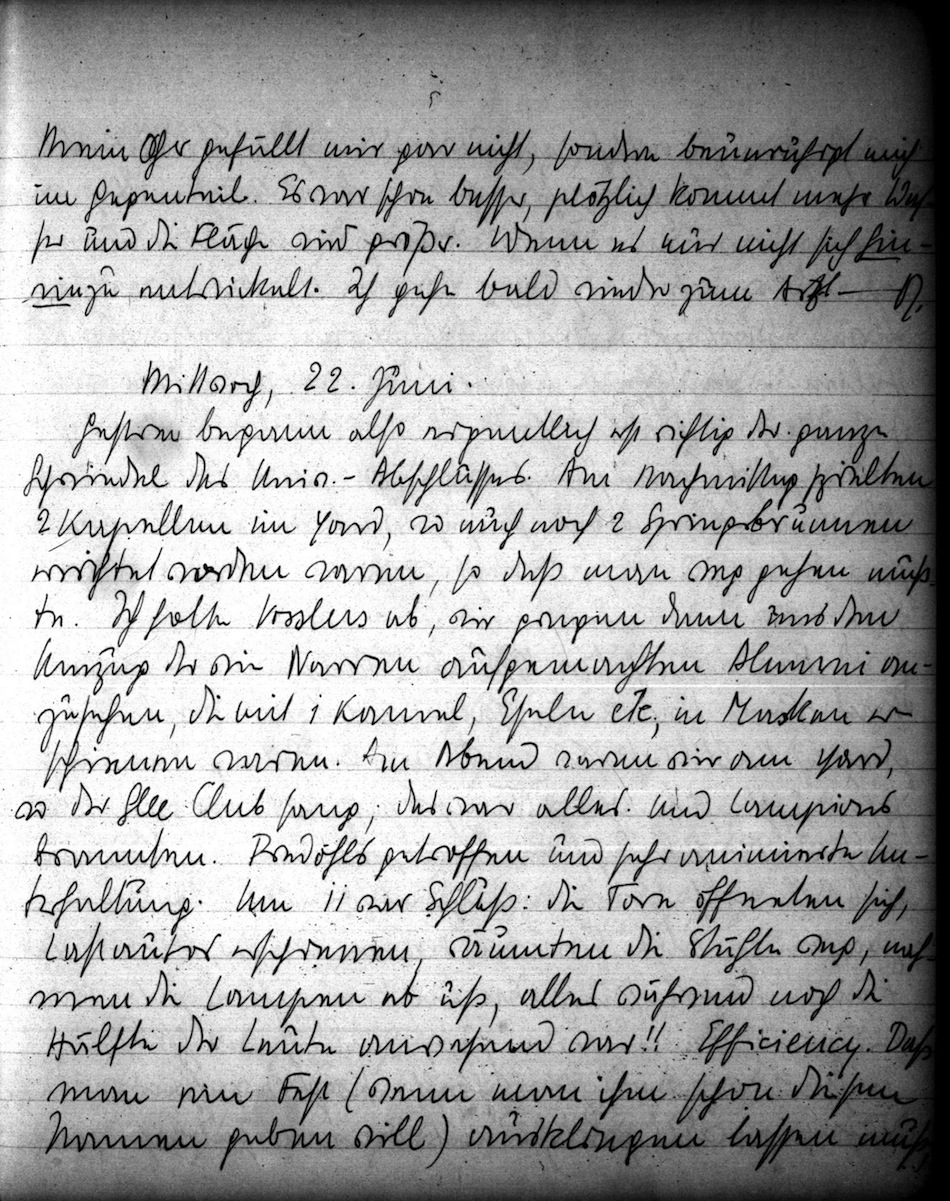 5
Mein Ohr gefällt mir gar nicht, sondern beunruhigt mich
im Gegenteil. Es war schon besser, plötzlich kommt mehr Was-
ser und die Fläche wird größer. Wenn es nur nicht sich hin-
einzu entwickelt. Ich gehe bald wieder zum Arzt —
Mittwoch, 22. Juni.
Gestern begann also eigentlich erst richtig der ganze
Schwindel des Univ.-Abschlusses. Am Nachmittag spielten
2 Kapellen im Yard, wo auch noch 2 Springbrunnen
errichtet worden waren, so daß man weg gehen muß-
te. Ich holte Vosslers ab, wir gingen dann uns den
Umzug der wie Narren aufgemachten Alumni an-
zusehen, die mit 1 Kamel, Eseln etc, in Masken er-
schienen waren. Am Abend waren wir am Yard,
wo der Glee Club sang; das war alles. Und Lampions
brannten. Predöhls getroffen und sehr animierte Un-
terhaltung. Um 11 war Schluß: die Tore öffneten sich,
Lastautos erschienen, räumten die Stühle weg, nah-
men die Lampen ab usw, alles während noch die
Hälfte der Leute anwesend war!! Efficiency. Daß
man ein Fest (wenn man ihm schon diesen
Namen geben will) ausklingen lassen muß,